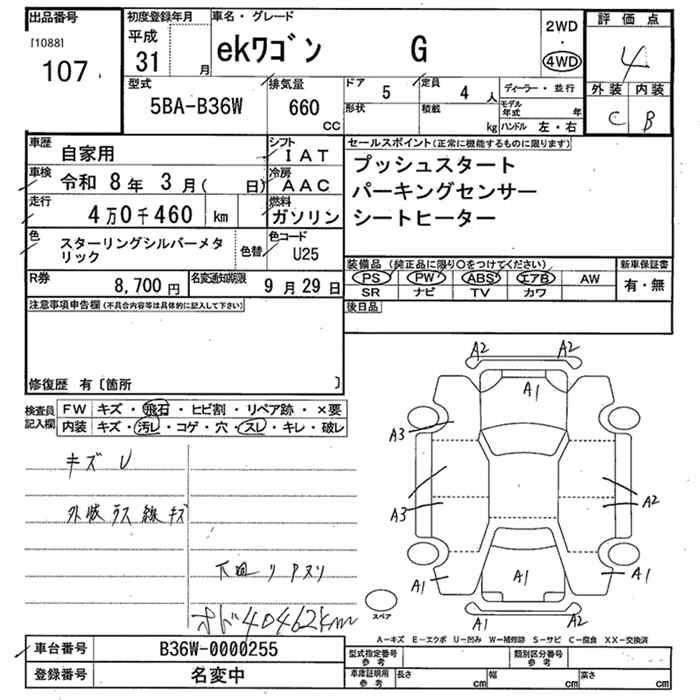 出品番号
[1088]
107
初度登録年月
平成
31 月
車名・グレード
ekワゴン G
2WD
・
4WD
評価点
4
外装 内装
C B
型式
5BA-B36W
排気量
660
CC
ドア 5
定員 4 人
形状
積載 kg
ディーラー・並行
モデル年式 年
ハンドル 左・右
車歴
自家用
シフト
IAT
車検
令和 8年 3月( 日)
冷房
AAC
走行
4万0千460 km
燃料
ガソリン
色
スターリングシルバーメタ
リック
色替
色コード
U25
R券
8,700円
名変通知期限
9月29日
セールスポイント(正常に機能するものに限ります)
プッシュスタート
パーキングセンサー
シートヒーター
装備品(純正品に限り○をつけてください)
新車保証書
PS PW ABS エアB AW
SR ナビ TV カワ
有・無
後日品
注意事項申告欄(不具合内容等は具体的に記入して下さい)
修復歴 有〔箇所 〕
検査員
記入欄
FW キズ・飛石・ヒビ割・リペア跡・×要
内装 キズ・汚レ・コゲ・穴・スレ・キレ・破レ
キズ U
外装 ラス 線キズ
下廻リ
オド40462km
A2 A2
A1
A3
A3
A2
A1
A1
A1
A2 A2
スペア
A-キズ E-エクボ U-凹み W-補修跡 S-サビ C-腐食 XX-交換済
車台番号
B36W-0000255
登録番号
名変中
型式指定番号
参考
類別区分番号
参考
車庫証明用
参考
長さ cm
幅 cm
高さ cm